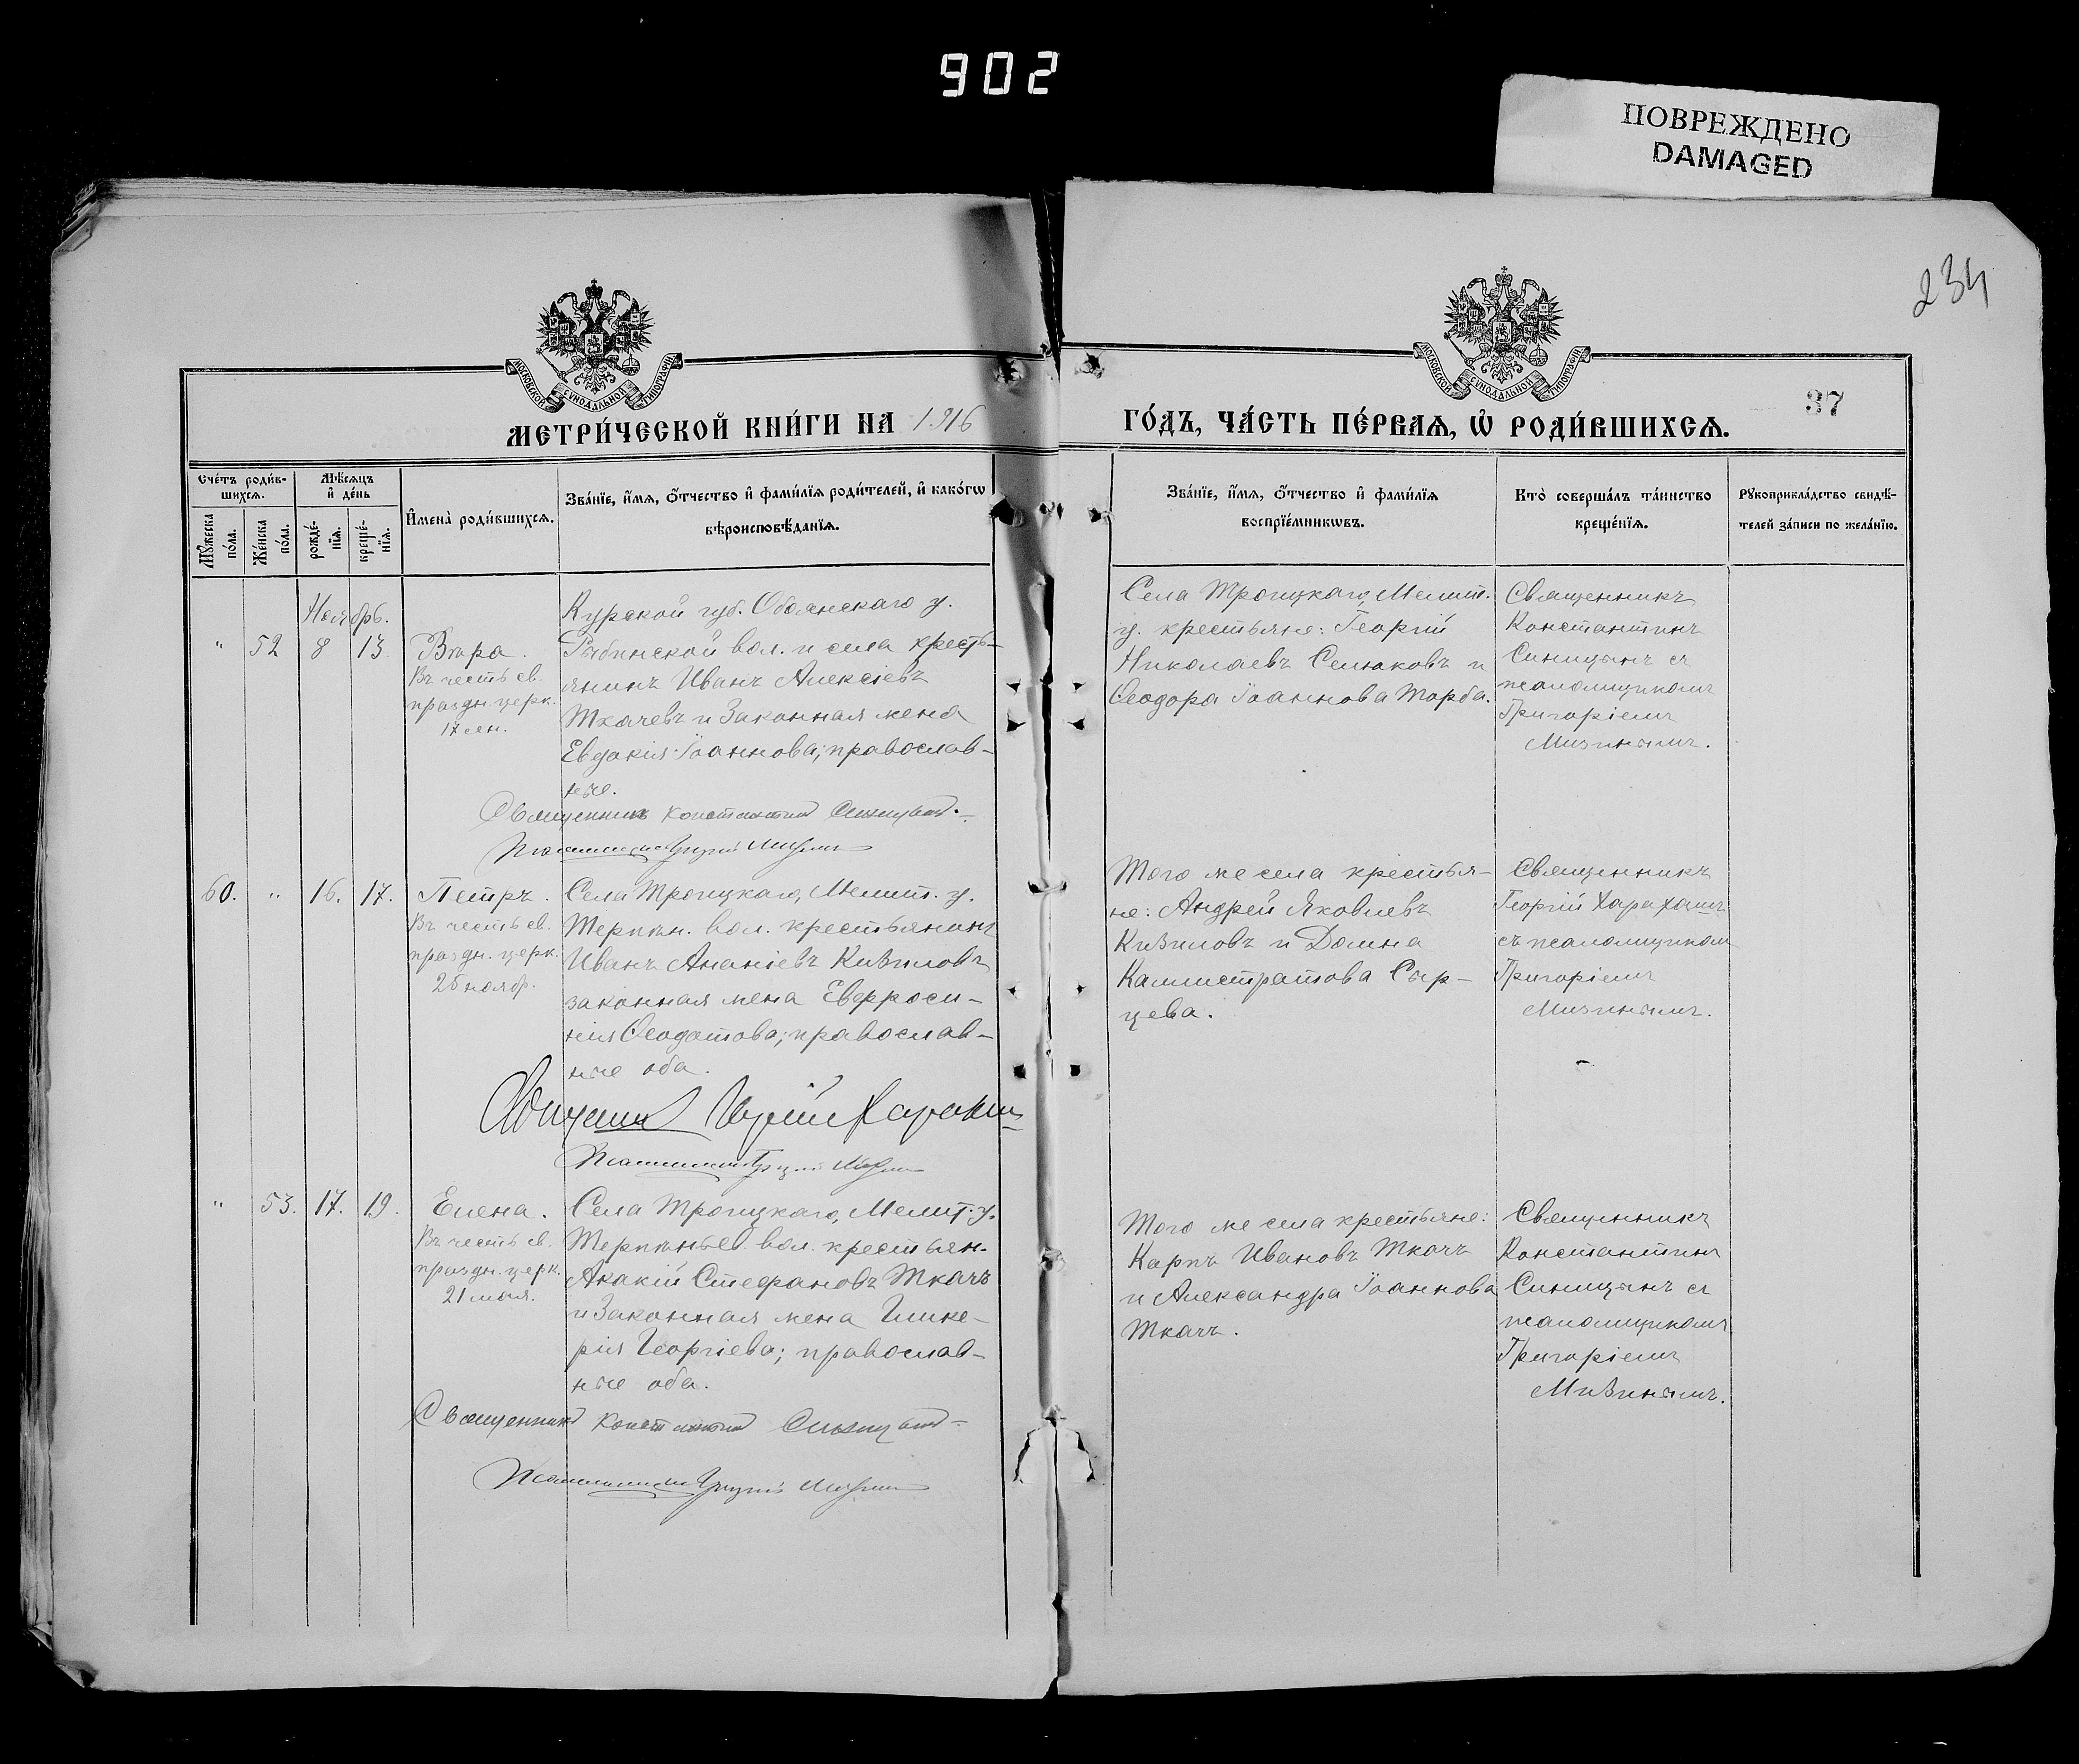 902
ПОВРЕЖДЕНО
DAMAGED
234
МОСКОВСКОЙ СУНОДАЛЬНОЙ ТИПОГРАФІИ
МОСКОВСКОЙ СУНОДАЛЬНОЙ ТИПОГРАФІИ
37
МЕТРИ́ЧЕСКОЙ КНИ́ГИ НА 1916
ГО́ДЪ, ЧА́СТЬ ПЕ́РВАѦ, Ѡ҆ РОДИ́ВШИХСѦ.
Сче́тъ роди́в-
шихсѧ.
Мѣ́сѧцъ
и҆ де́нь
Мꙋ́жеска
по́ла.
Же́нска
по́ла.
рожде́-
нїѧ.
креще́-
нїѧ.
И҆мена̀ роди́вшихсѧ.
Зва́нїе, и҆́мѧ, ѻ҆́тчество и҆ фами́лїѧ роди́телей, и҆ како́гѡ
вѣроисповѣ́данїѧ.
Зва́нїе, и҆́мѧ, ѻ҆́тчество и҆ фами́лїѧ
воспрїе́мникѡвъ.
Кто̀ соверша́лъ та́инство
креще́нїѧ.
Рꙋкоприкла́дство свидѣ́-
телей за́писи по жела́нїю.
Ноябрь.
" 52 8 13
Вѣра.
Въ честь св.
праздн. церк.
17 сен.
Курской губ. Обоянскаго у.
Рыбинской вол. и села кресть-
янинъ Иванъ Алексѣевъ
Ткачевъ и законная жена
Евдокія Іоаннова; православ-
ные.
Священникъ Константин Синицынъ.
Псаломщикъ Григорій Мизинъ
Села Троицкаго, Мелит.
у. крестьяне: Георгій
Николаевъ Сельковъ и
Ѳеодора Іоаннова Торба.
Священникъ
Константинъ
Синицынъ съ
псаломщикомъ
Григоріемъ
Мизинымъ.
60. " 16. 17.
Петръ.
Въ честь св.
праздн. церк.
25 ноябр.
Села Троицкаго, Мелит. у.
Терпѣн. вол. крестьянинъ
Иванъ Ананіевъ Кизиловъ
законная жена Евфроси-
нія Ѳеодотова; православ-
ные оба.
Священникъ Георгій Харахаш
Псаломщикъ Григорій Мизинъ
Того же села крестья-
не: Андрей Яковлевъ
Кизиловъ и Домна
Каллистратова Сыр-
цева.
Священникъ
Георгій Харахашъ
съ псаломщиком
Григоріемъ
Мизинымъ.
" 53. 17. 19.
Елена.
Въ честь св.
праздн. церк.
21 мая.
Села Троицкаго, Мелит. у.
Терпѣньев. вол. крестьян.
Акакій Стефановъ Ткачъ
и законная жена Глике-
рія Георгіева; православ-
ные оба.
Священникъ Константин Синицынъ
Псаломщикъ Григорій Мизинъ
Того же села крестьяне:
Карпъ Ивановъ Ткачъ
и Александра Іоаннова
Ткачъ.
Священникъ
Константинъ
Синицынъ съ
псаломщикомъ
Григоріемъ
Мизинымъ.